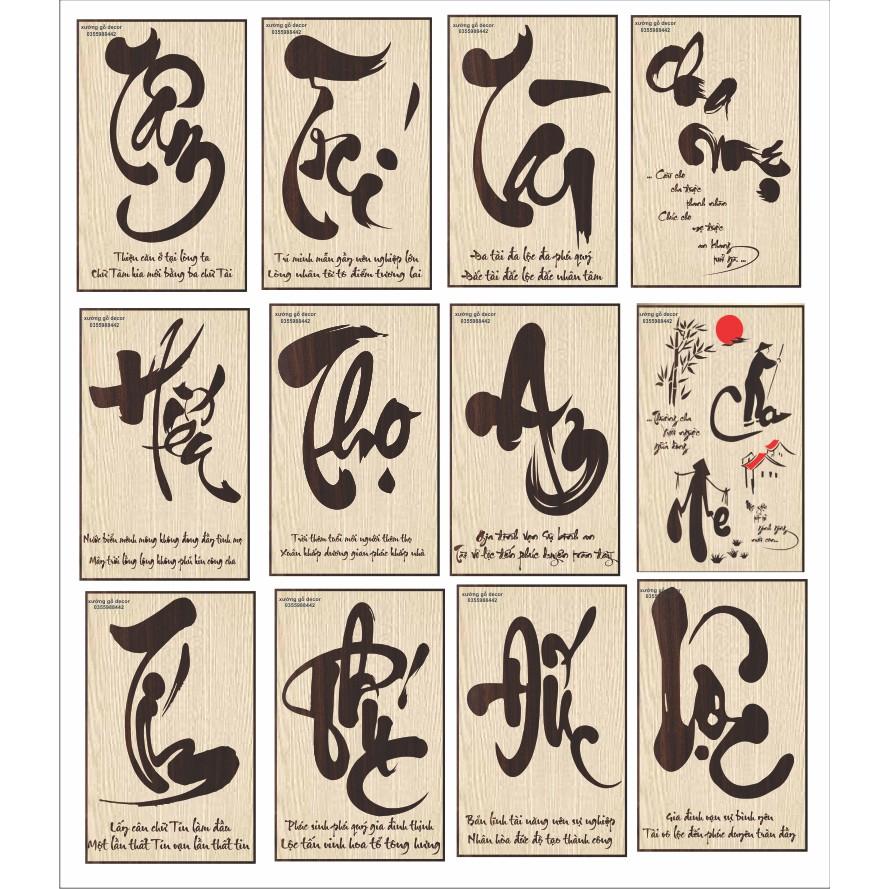 xưởng gỗ decor
0355988442
Tâm
Thiện căn ở tại lòng ta
Chữ Tâm kia mới bằng ba chữ Tài
xưởng gỗ decor
0355988442
Trí
Trí minh mẫn gây nên nghiệp lớn
Lòng nhân từ tô điểm tương lai
xưởng gỗ decor
0355988442
Tài
Đa tài đa lộc đa phú quý
Đắc tài đắc lộc đắc nhân tâm
xưởng gỗ decor
0355988442
Cha
Mẹ
... Cầu cho
cha được
thanh nhàn
Chúc cho
mẹ được
an khang
tuổi già ...
xưởng gỗ decor
0355988442
Hiếu
Nước biển mênh mông không đong đầy tình mẹ
Mây trời lồng lộng không phủ kín công cha
Thọ
Trời thêm tuổi mới người thêm thọ
Xuân khắp dương gian phúc khắp nhà
xưởng gỗ decor
0355988442
An
Gia đình vạn sự bình an
Tài vô lộc tiến phúc duyên tràn đầy
xưởng gỗ decor
0355988442
Cha
Mẹ
xưởng gỗ decor
0355988442
Tín
Lấy câu chữ Tín làm đầu
Một lần thất Tín vạn lần thất tin
xưởng gỗ decor
0355988442
Phúc
Phúc sinh phú quý gia đình thịnh
Lộc tấn vinh hoa tổ tông hưng
xưởng gỗ decor
0355988442
Đức
Bản lĩnh tài năng nên sự nghiệp
Nhân hòa đức độ tạo thành công
xưởng gỗ decor
0355988442
Lộc
Gia đình vạn sự bình yên
Tài vô lộc đến phúc duyên tràn đầy